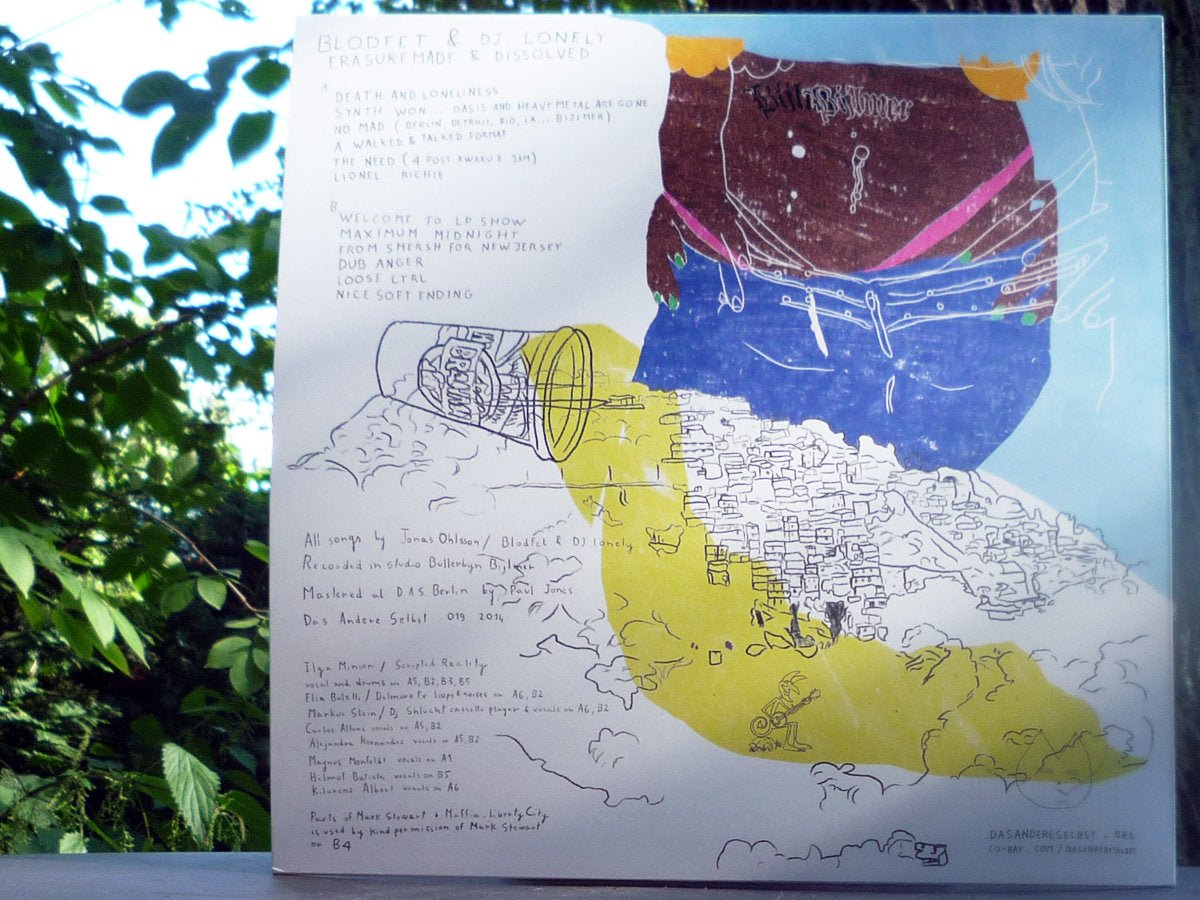 BLODFET & DJ LONELY
ERASUREMADE & DISSOLVED
A
DEATH AND LONELINESS
SYNTH WON... OASIS AND HEAVY METAL ARE GONE
NO MAD (BERLIN, DETROIS, RIO, LA... BIJLMER)
A WALKED & TALKED FORMAT
THE NEED (4 POST AWAKU E JAM)
LIONEL RICHIE
B
WELCOME TO LP SHOW
MAXIMUM MIDNIGHT
FROM SMERSH FOR NEW JERSEY
DUB ANGER
LOOSE CTRL
NICE SOFT ENDING
Bijlmer
All songs by Jonas Ohlsson / Blodfet & DJ lonely
Recorded in studio Bullerbyn Bijlmer
Mastered at DAS Berlin by Paul Jones
Das Andere Selbst 019 2014
Ilga Minion / Scripted Reality
vocal and drums on A5, B2, B3, B5
Elia Buletti / Dalmore Fx loops & noises on A6, B2
Markus Stein / Dj Shlucht cassette player & vocals on A6, B2
Carlos Alfons vocals on A5, B2
Alejandra Hernandez vocals on A5, B2
Magnus Monfeldt vocals on A1
Helmut Batista vocals on B5
Albert vocals on A6
Parts of Mark Stewart + Maffia - Liberty City
is used by kind permission of Mark Stewart
on B4
DASANDERESELBST . ORG
CO-BAY . COM / DASANDERESELBST